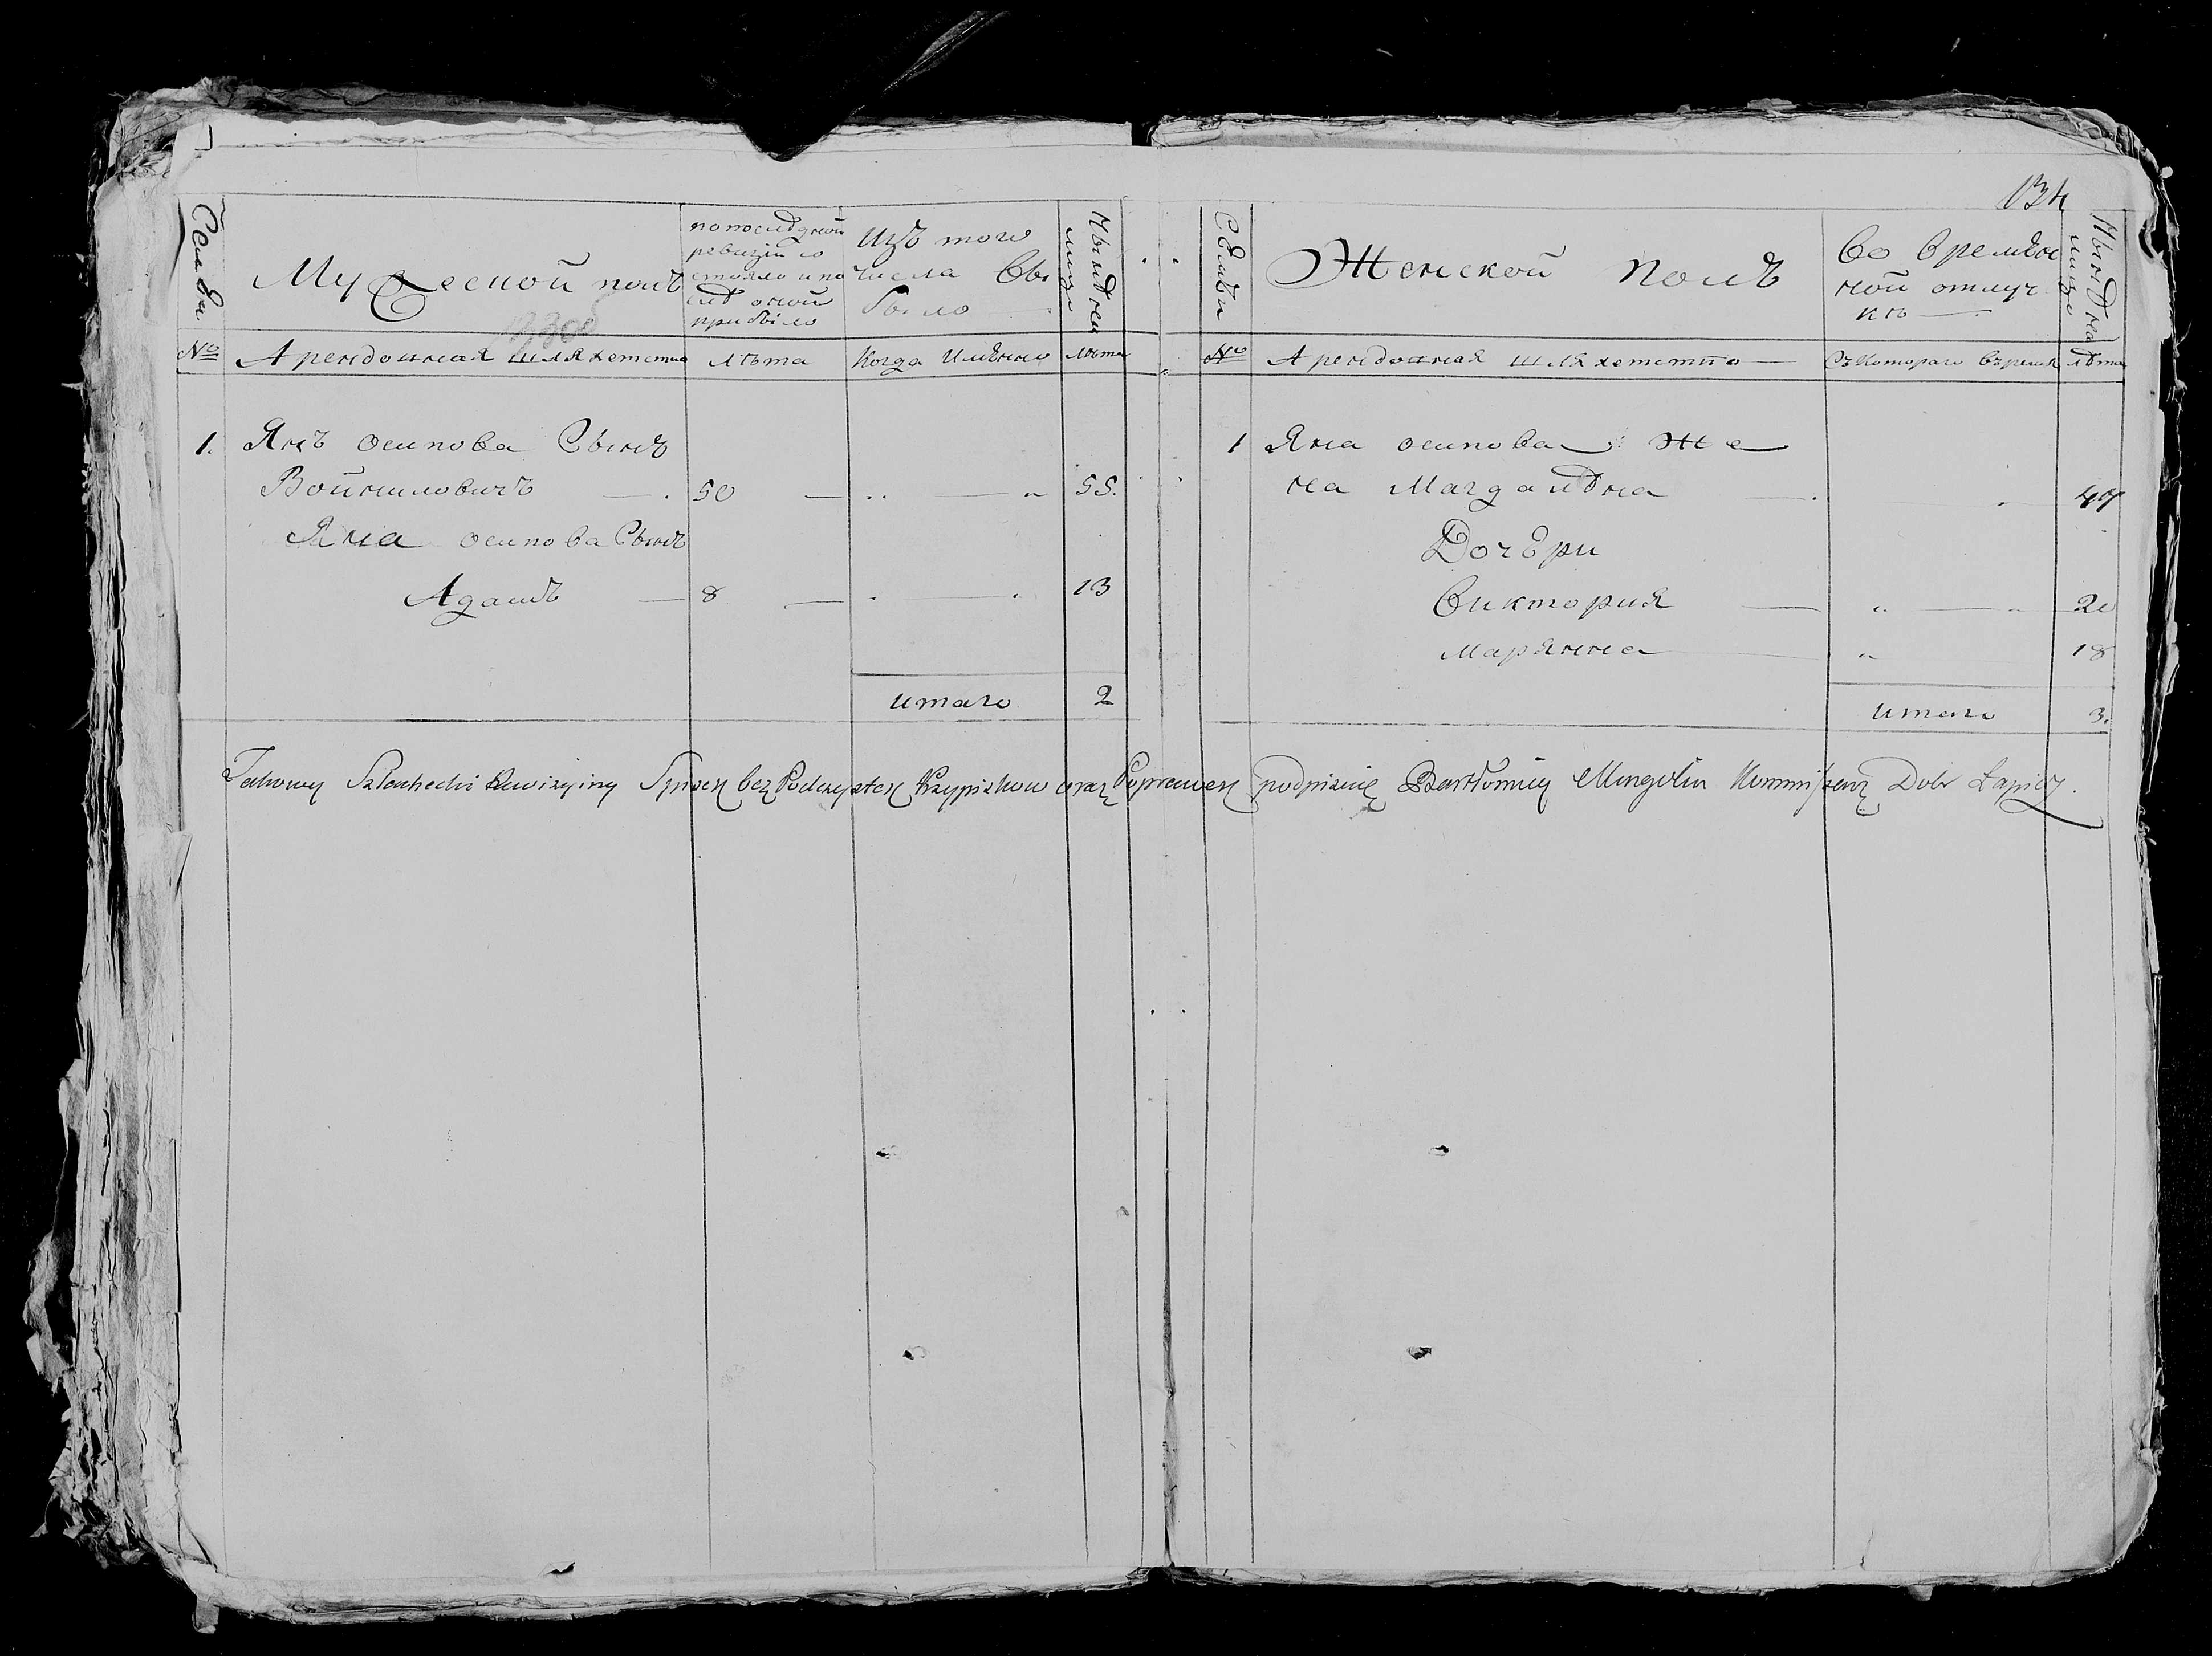 134
Семья
Мужеской полъ
по последней
ревизіи со
стояло и по
слѣ оной
прибыло
Изъ того
числа Вы
было
Нынѣ на
лицо
№
Арендовная шляхетство
лѣта
Когда Имѣнно
лѣта
1. Янъ осипова Сынъ
Войниловичъ 50 55.
Яна осипова Сынъ
Адамъ 8 13
итого 2
Семьи
Женской полъ
Во времен
ной отлуч
кѣ
Нынѣ на
лицо
№
Арендовная шляхетство
Съ Котораго Времен
лѣта
1 Яна осипова Же
на Магдалѣна 47
Дочери
Виктория 20
Марянна 18
итого 3.
Takowy Szlachecki Rewizyiny Spisek bez Podczystek Przypiskow oraz Poprawek podpisuię Bartłomiey Mingolin Kommissarz Dobr Łapicz.